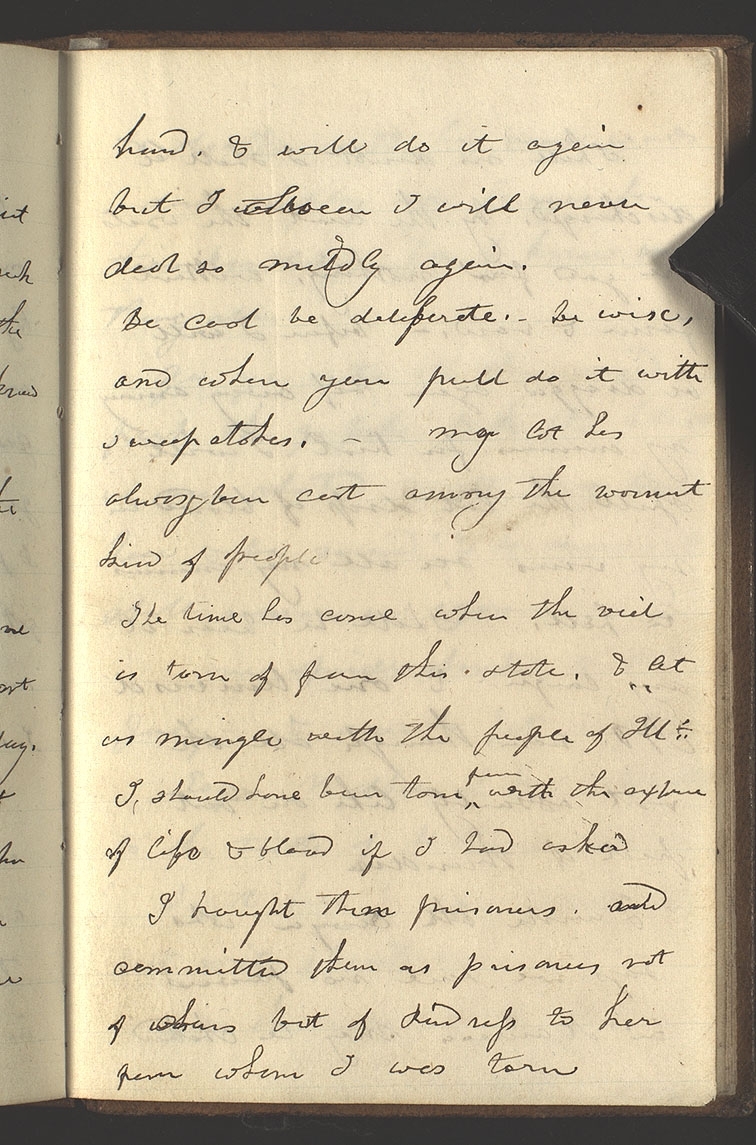 hand. & will do it again
but I I will never
deal so mildly again.
Be cool be deliberate. - be wise,
and when you pull do it with
sweepstakes. - my lot has
always been cast among the warmest
kind of people
The time has come when the vail
is torn of from this state. & let
us mingle with the people of Ills.
I, should have been torn from with the expence
of life & blood if I had asked
I brought them prisoners. and
committed them as prisoners not
of chains but of kindness to her
from whom I was torn